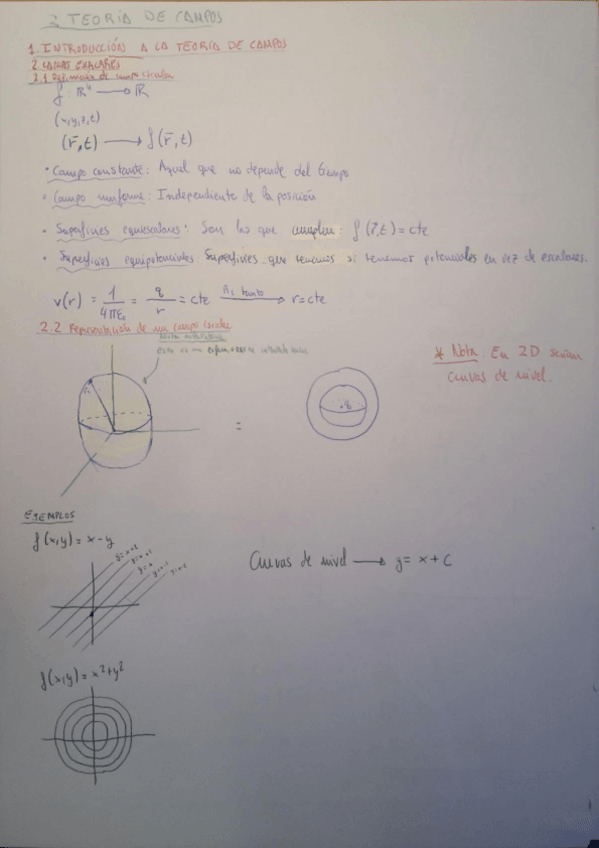 2. TEORÍA DE CAMPOS
1. INTRODUCCIÓN A LA TEORÍA DE CAMPOS
2. CAMPOS ESCALARES
2.1 Definición de campo escalar
f: ℝ⁴ → ℝ
(x,y,z,t)
(r̄,t) → f(r̄,t)
· Campo constante: Aquel que no depende del tiempo
· Campo uniforme: Independiente de la posición
· Superficies equiescalares: Son las que cumplen: f(r̄,t) = cte
· Superficies equipotenciales: Superficies que tenemos si tenemos potenciales en vez de escalares.
v(r) = 1/4πε₀ = q/r = cte → r = cte
2.2 Representación de un campo escalar
* Nota: En 2D serían
curvas de nivel.
=
EJEMPLOS
f(x,y) = x-y
y=x+2
y=x+1
y=x
Curvas de nivel → y = x + C
f(x,y) = x²+y²